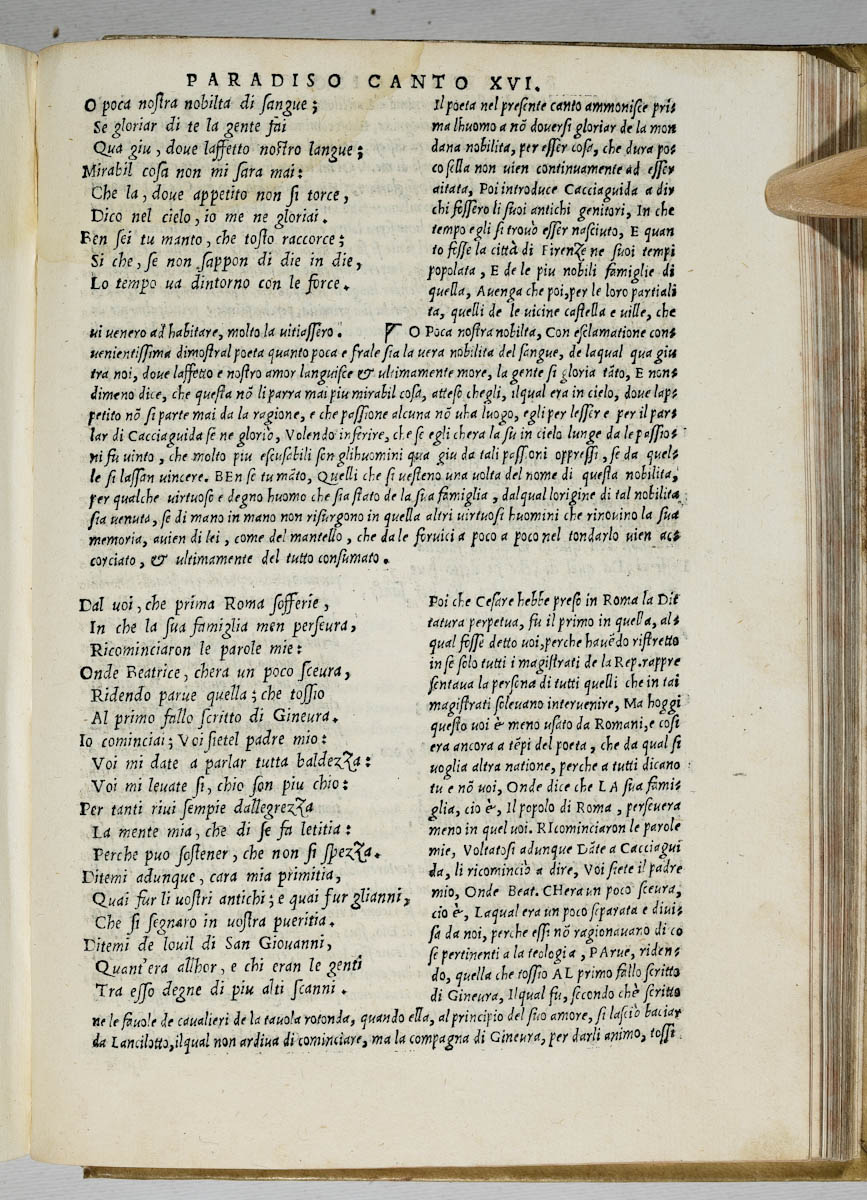 PARADISO CANTO XVI.
O poca nostra nobilta di sangue;
Se gloriar di te la gente fai
Qua giu, doue laffetto nostro langue;
Mirabil cosa non mi sara mai:
Che la, doue appetito non si torce,
Dico nel cielo, io me ne gloriai.
Ben sei tu manto, che tosto raccorce;
Si che, se non sappon di die in die,
Lo tempo ua dintorno con le force.
Il poeta nel presente canto ammonisce pri=
ma lhuomo a nõ douersi gloriar de la mon
dana nobilita, per esser cosa, che dura po=
co sella non uien continuamente ad esser
aitata, Poi introduce Cacciaguida a dir
chi fossero li suoi antichi genitori, In che
tempo egli si trouo esser nasciuto, E quan
to fosse la città di Firenze ne suoi tempi
popolata, E de le piu nobili famiglie di
quella, Auenga che poi, per le loro partiali
ta, quelli de le uicine castella e uille, che
ui uenero ad habitare, molto la uitiassero. O Poca nostra nobilta, Con esclamatione con=
uenientissima dimostral poeta quanto poca e frale sia la uera nobilita del sangue, de laqual qua giu
tra noi, doue laffetto e nostro amor languisce & ultimamente more, la gente si gloria tãto, E non=
dimeno dice, che questa nõ li parra mai piu mirabil cosa, atteso chegli, ilqual era in cielo, doue lap=
petito nõ si parte mai da la ragione, e che passione alcuna nõ uha luogo, egli per lesser e per il par=
lar di Cacciaguida se ne gloriò, Volendo inferire, che se egli chera la su in cielo lunge da le passio=
ni fu uinto, che molto piu escusabili son glihuomini qua giu da tali passioni oppressi, se da quel=
le si lassan uincere. BEn se tu mãto, Quelli che si uesteno una uolta del nome di questa nobilita,
per qualche uirtuoso e degno huomo che sia stato de la sua famiglia, dalqual lorigine di tal nobilita
sia uenuta, se di mano in mano non risurgono in quella altri uirtuosi huomini che rinouino la sua
memoria, auien di lei, come del mantello, che da le foruici a poco a poco nel tondarlo uien ac=
corciato, & ultimamente del tutto consumato.
Dal uoi, che prima Roma sofferie,
In che la sua famiglia men perseura,
Ricominciaron le parole mie:
Onde Beatrice, chera un poco sceura,
Ridendo parue quella; che tossio
Al primo fallo scritto di Gineura.
Io cominciai; Voi sietel padre mio:
Voi mi date a parlar tutta baldezza:
Voi mi leuate si, chio son piu chio:
Per tanti riui sempie dallegrezza
La mente mia, che di se fa letitia:
Perche puo sostener, che non si spezza.
Ditemi adunque, cara mia primitia,
Quai fur li uostri antichi; e quai fur glianni,
Che si segnaro in uostra pueritia.
Ditemi de louil di San Giouanni,
Quant'era allhor, e chi eran le genti
Tra esso degne di piu alti scanni.
Poi che Cesare hebbe preso in Roma la Dit
tatura perpetua, fu il primo in quella, al=
qual fosse detto uoi, perche hauẽdo ristretto
in se solo tutti i magistrati de la Rep. rappre
sentaua la persona di tutti quelli che in tai
magistrati soleuano interuenire, Ma hoggi
questo uoi è meno usato da Romani, e cosi
era ancora a tẽpi del poeta, che da qual si
uoglia altra natione, perche a tutti dicano
tu e nõ uoi, Onde dice che LA sua fami=
glia, cio è, Il popolo di Roma, perseuera
meno in quel uoi. RIcominciaron le parole
mie, Voltatosi adunque Dãte a Cacciagui
da, li ricominciò a dire, Voi siete il padre
mio, Onde Beat. CHera un poco sceura,
cio è, Laqual era un poco separata e diui=
sa da noi, perche essi nõ ragionauano di co
se pertinenti a la teologia, PArue, riden=
do, quella che tossio AL primo fallo scritto
di Gineura, Ilqual fu, secondo ch'è scritto
ne le fauole de caualieri de la tauola rotonda, quando ella, al principio del suo amore, si lasciò baciar
da Lancilotto, ilqual non ardiua di cominciare, ma la compagna di Gineura, per darli animo, tossi